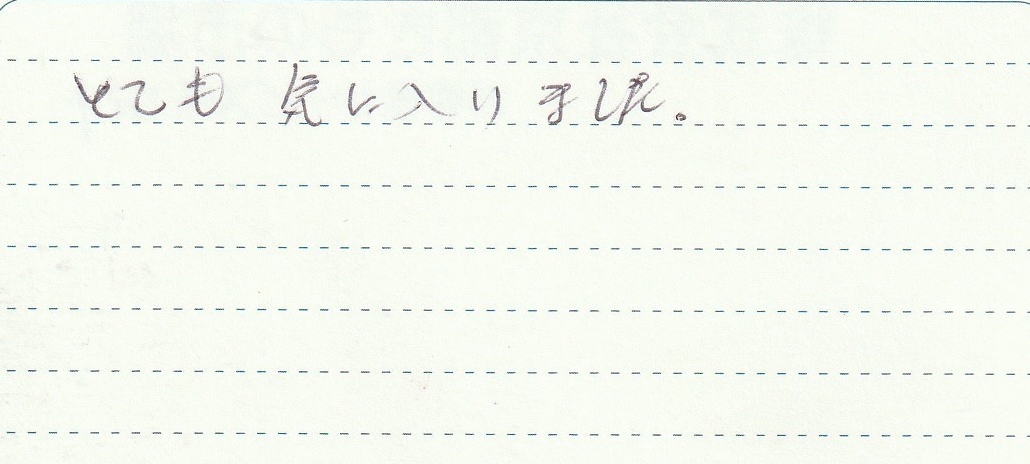 とても 気に入りました。